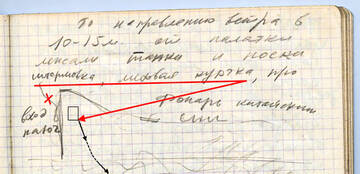 По направлению ветра в
10-15м от палатки
лежали тапки и носки
штормовка, меховая куртка, про
Фонарь китайский
вход